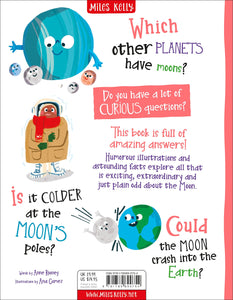 Miles Kelly
Which
other PLANETS
have moons?
Do you have a lot of
CURIOUS questions?
This book is full of
amazing answers!
Humorous illustrations and
astounding facts explore all that
is exciting, extraordinary and
just plain odd about the Moon.
Is it COLDER
at the
MOON'S
poles?
Could
the MOON
crash into the
Earth?
Words by Anne Rooney
Illustrations by Ana Gomez
www.MilesKelly.net